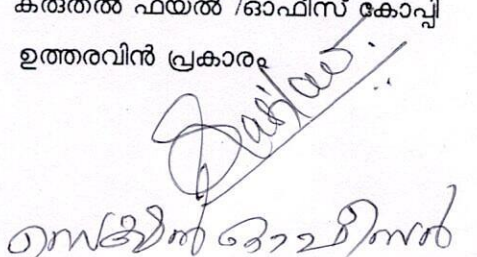 കരുതൽ ഫയൽ /ഓഫീസ് കോപ്പി
ഉത്തരവിൻ പ്രകാരം
സെക്ഷൻ ഓഫീസർ